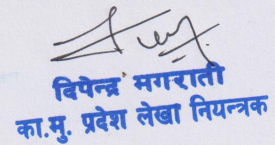 दिपेन्द्र मगराती
का.मु. प्रदेश लेखा नियन्त्रक